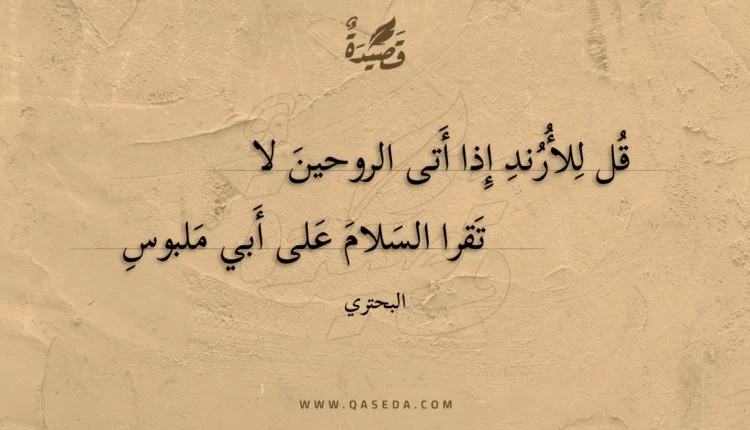 قَصِيدَةٌ
قُل لِلأُرُندِ إِذا أَتى الروحينَ لا
تَقرا السَلامَ عَلى أَبي مَلبوسِ
البحتري
WWW.QASEDA.COM